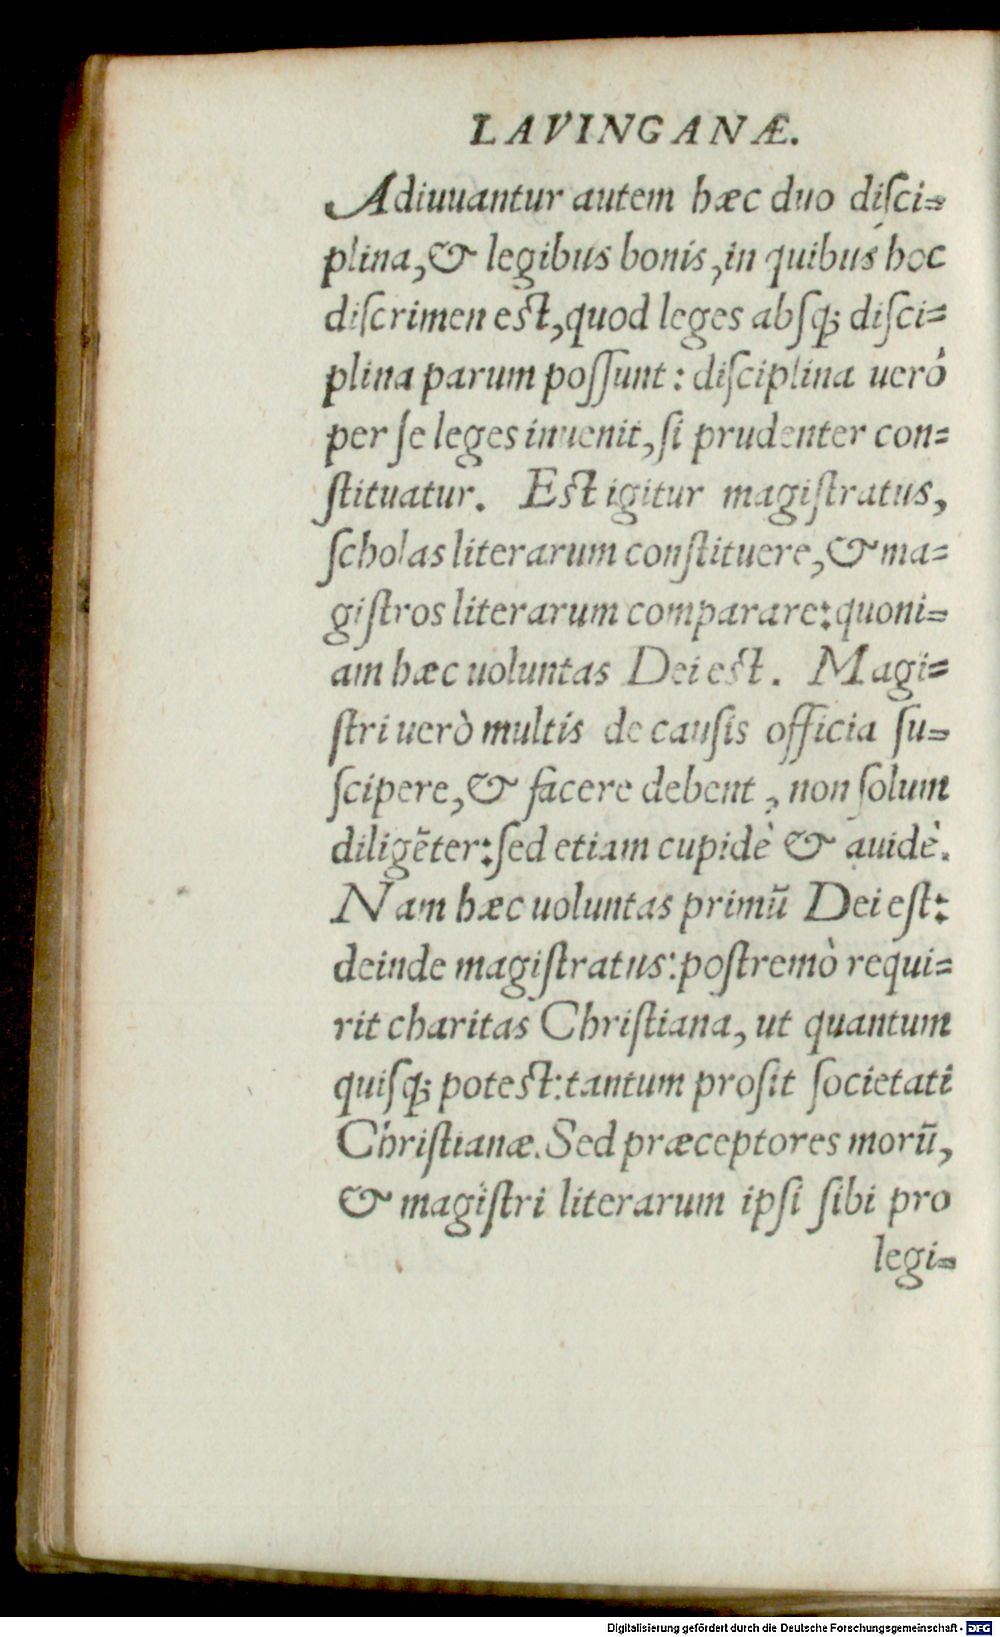 LAVINGANÆ.
Adiuuantur autem hæc duo disci=
plina, & legibus bonis, in quibus hoc
discrimen est, quod leges absq; disci=
plina parum possunt: disciplina uerò
per se leges inuenit, si prudenter con=
stituatur. Est igitur magistratus,
scholas literarum constituere, & ma=
gistros literarum comparare: quoni=
am hæc uoluntas Dei est. Magi=
stri uerò multis de causis officia su=
scipere, & facere debent, non solum
diligēter: sed etiam cupidè & auidè.
Nam hæc uoluntas primū Dei est:
deinde magistratus: postremò requi=
rit charitas Christiana, ut quantum
quisq; potest: tantum prosit societati
Christianæ. Sed præceptores morū,
& magistri literarum ipsi sibi pro
legi=
Digitalisierung gefördert durch die Deutsche Forschungsgemeinschaft - DFG